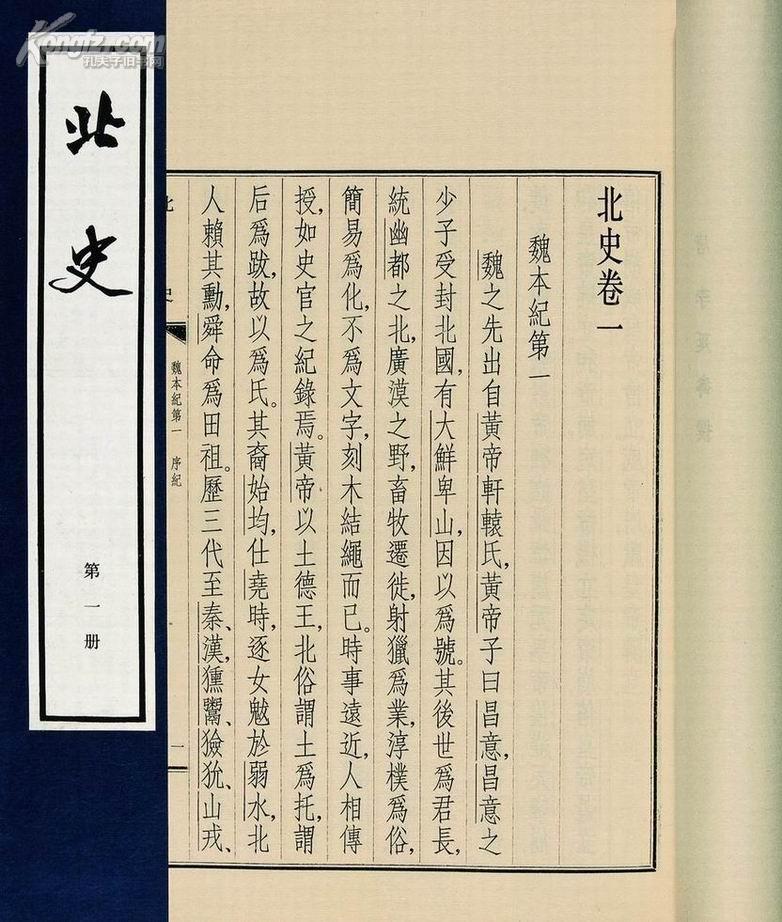 Kongfz.com
孔夫子旧书网
北史
第一册
北史卷一
魏本紀第一
魏之先出自黃帝軒轅氏，黃帝子曰昌意，昌意之
少子受封北國，有大鮮卑山，因以爲號。其後世爲君長，
統幽都之北，廣漠之野，畜牧遷徙，射獵爲業，淳樸爲俗，
簡易爲化，不爲文字，刻木結繩而已。時事遠近，人相傳
授，如史官之紀錄焉。黃帝以土德王，北俗謂土爲托，謂
后爲跋，故以爲氏。其裔始均，仕堯時，逐女魃於弱水，北
人賴其勳，舜命爲田祖。歷三代至秦、漢，獯鬻、獫狁、山戎、
北史
魏本紀第一 序紀
一